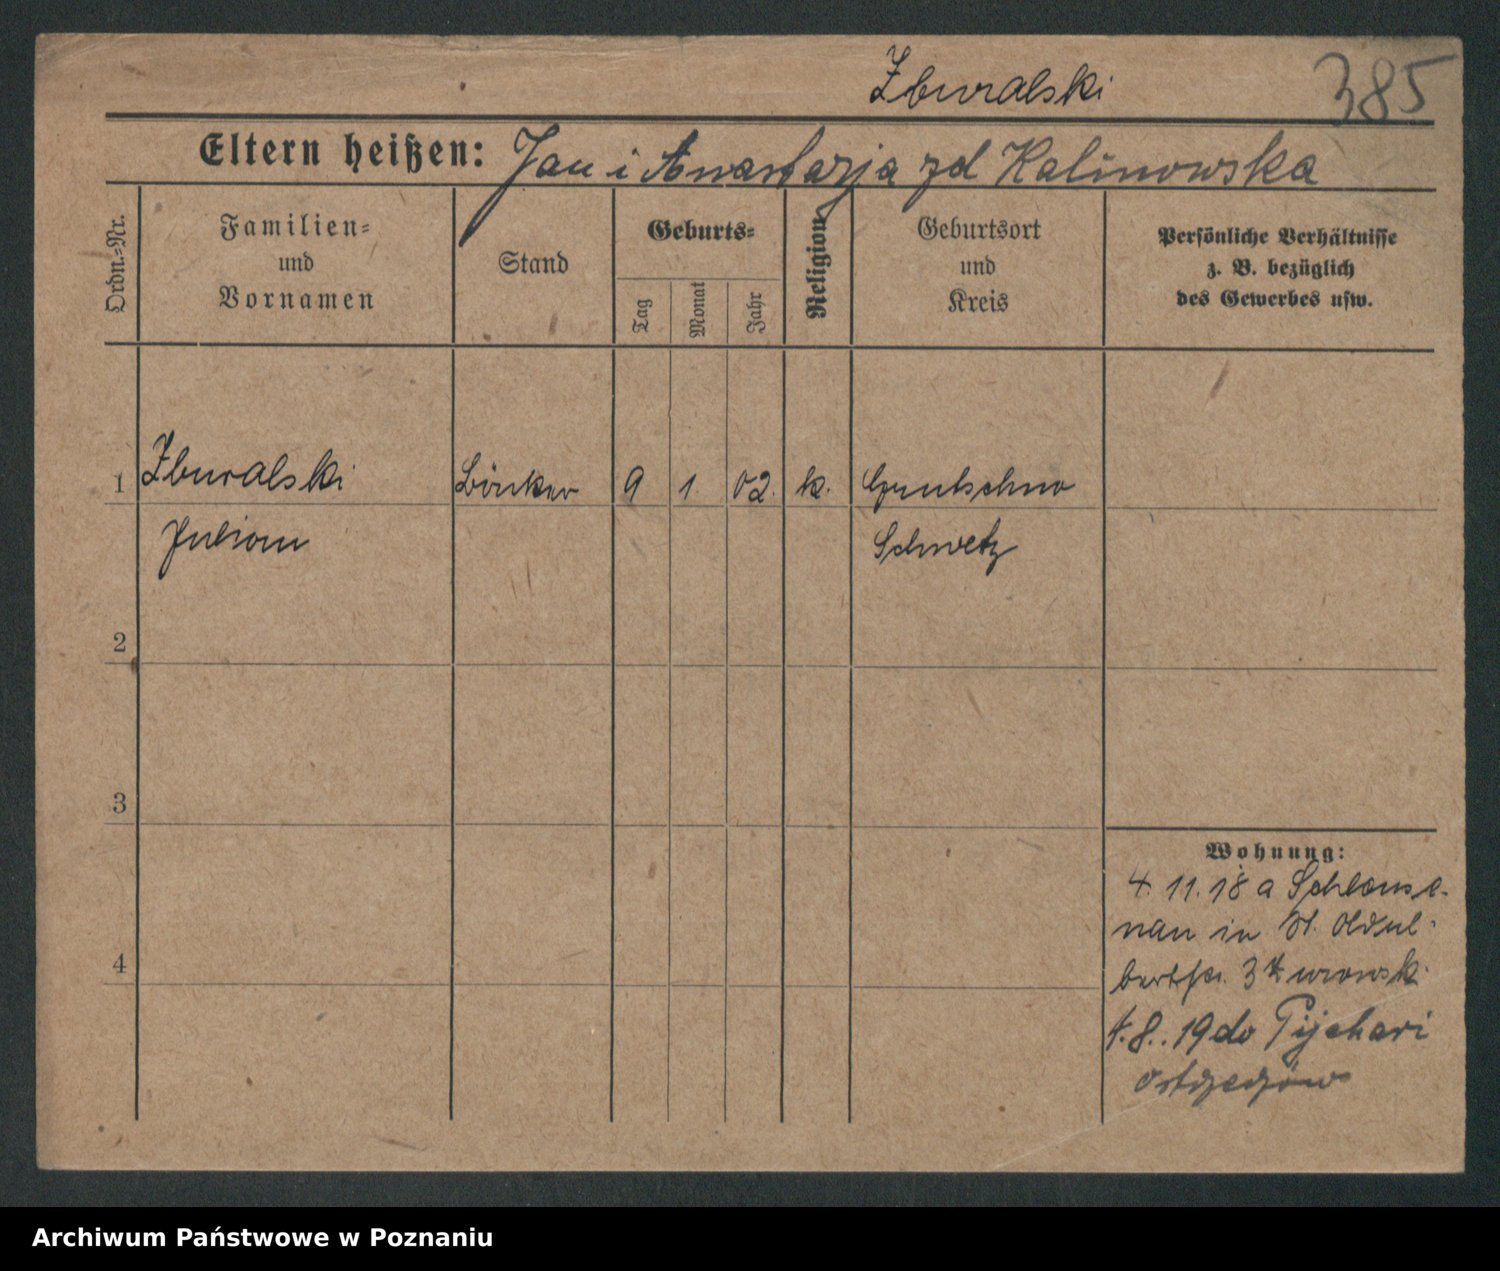 Zburalski 385
Eltern heißen: Jan i Anastazja zd Kalinowska
Ordn.-Nr.
Familien-
und
Vornamen
Stand
Geburts-
Tag
Monat
Jahr
Religion
Geburtsort
und
Kreis
Persönliche Verhältnisse
z. B. bezüglich
des Gewerbes usw.
1 Zburalski 9 1 02. k. Grutschno
Julian Schwetz
2
3
Wohnung:
4. 11. 18 a
nau in St.
4
4.8..19 do
Archiwum Państwowe w Poznaniu